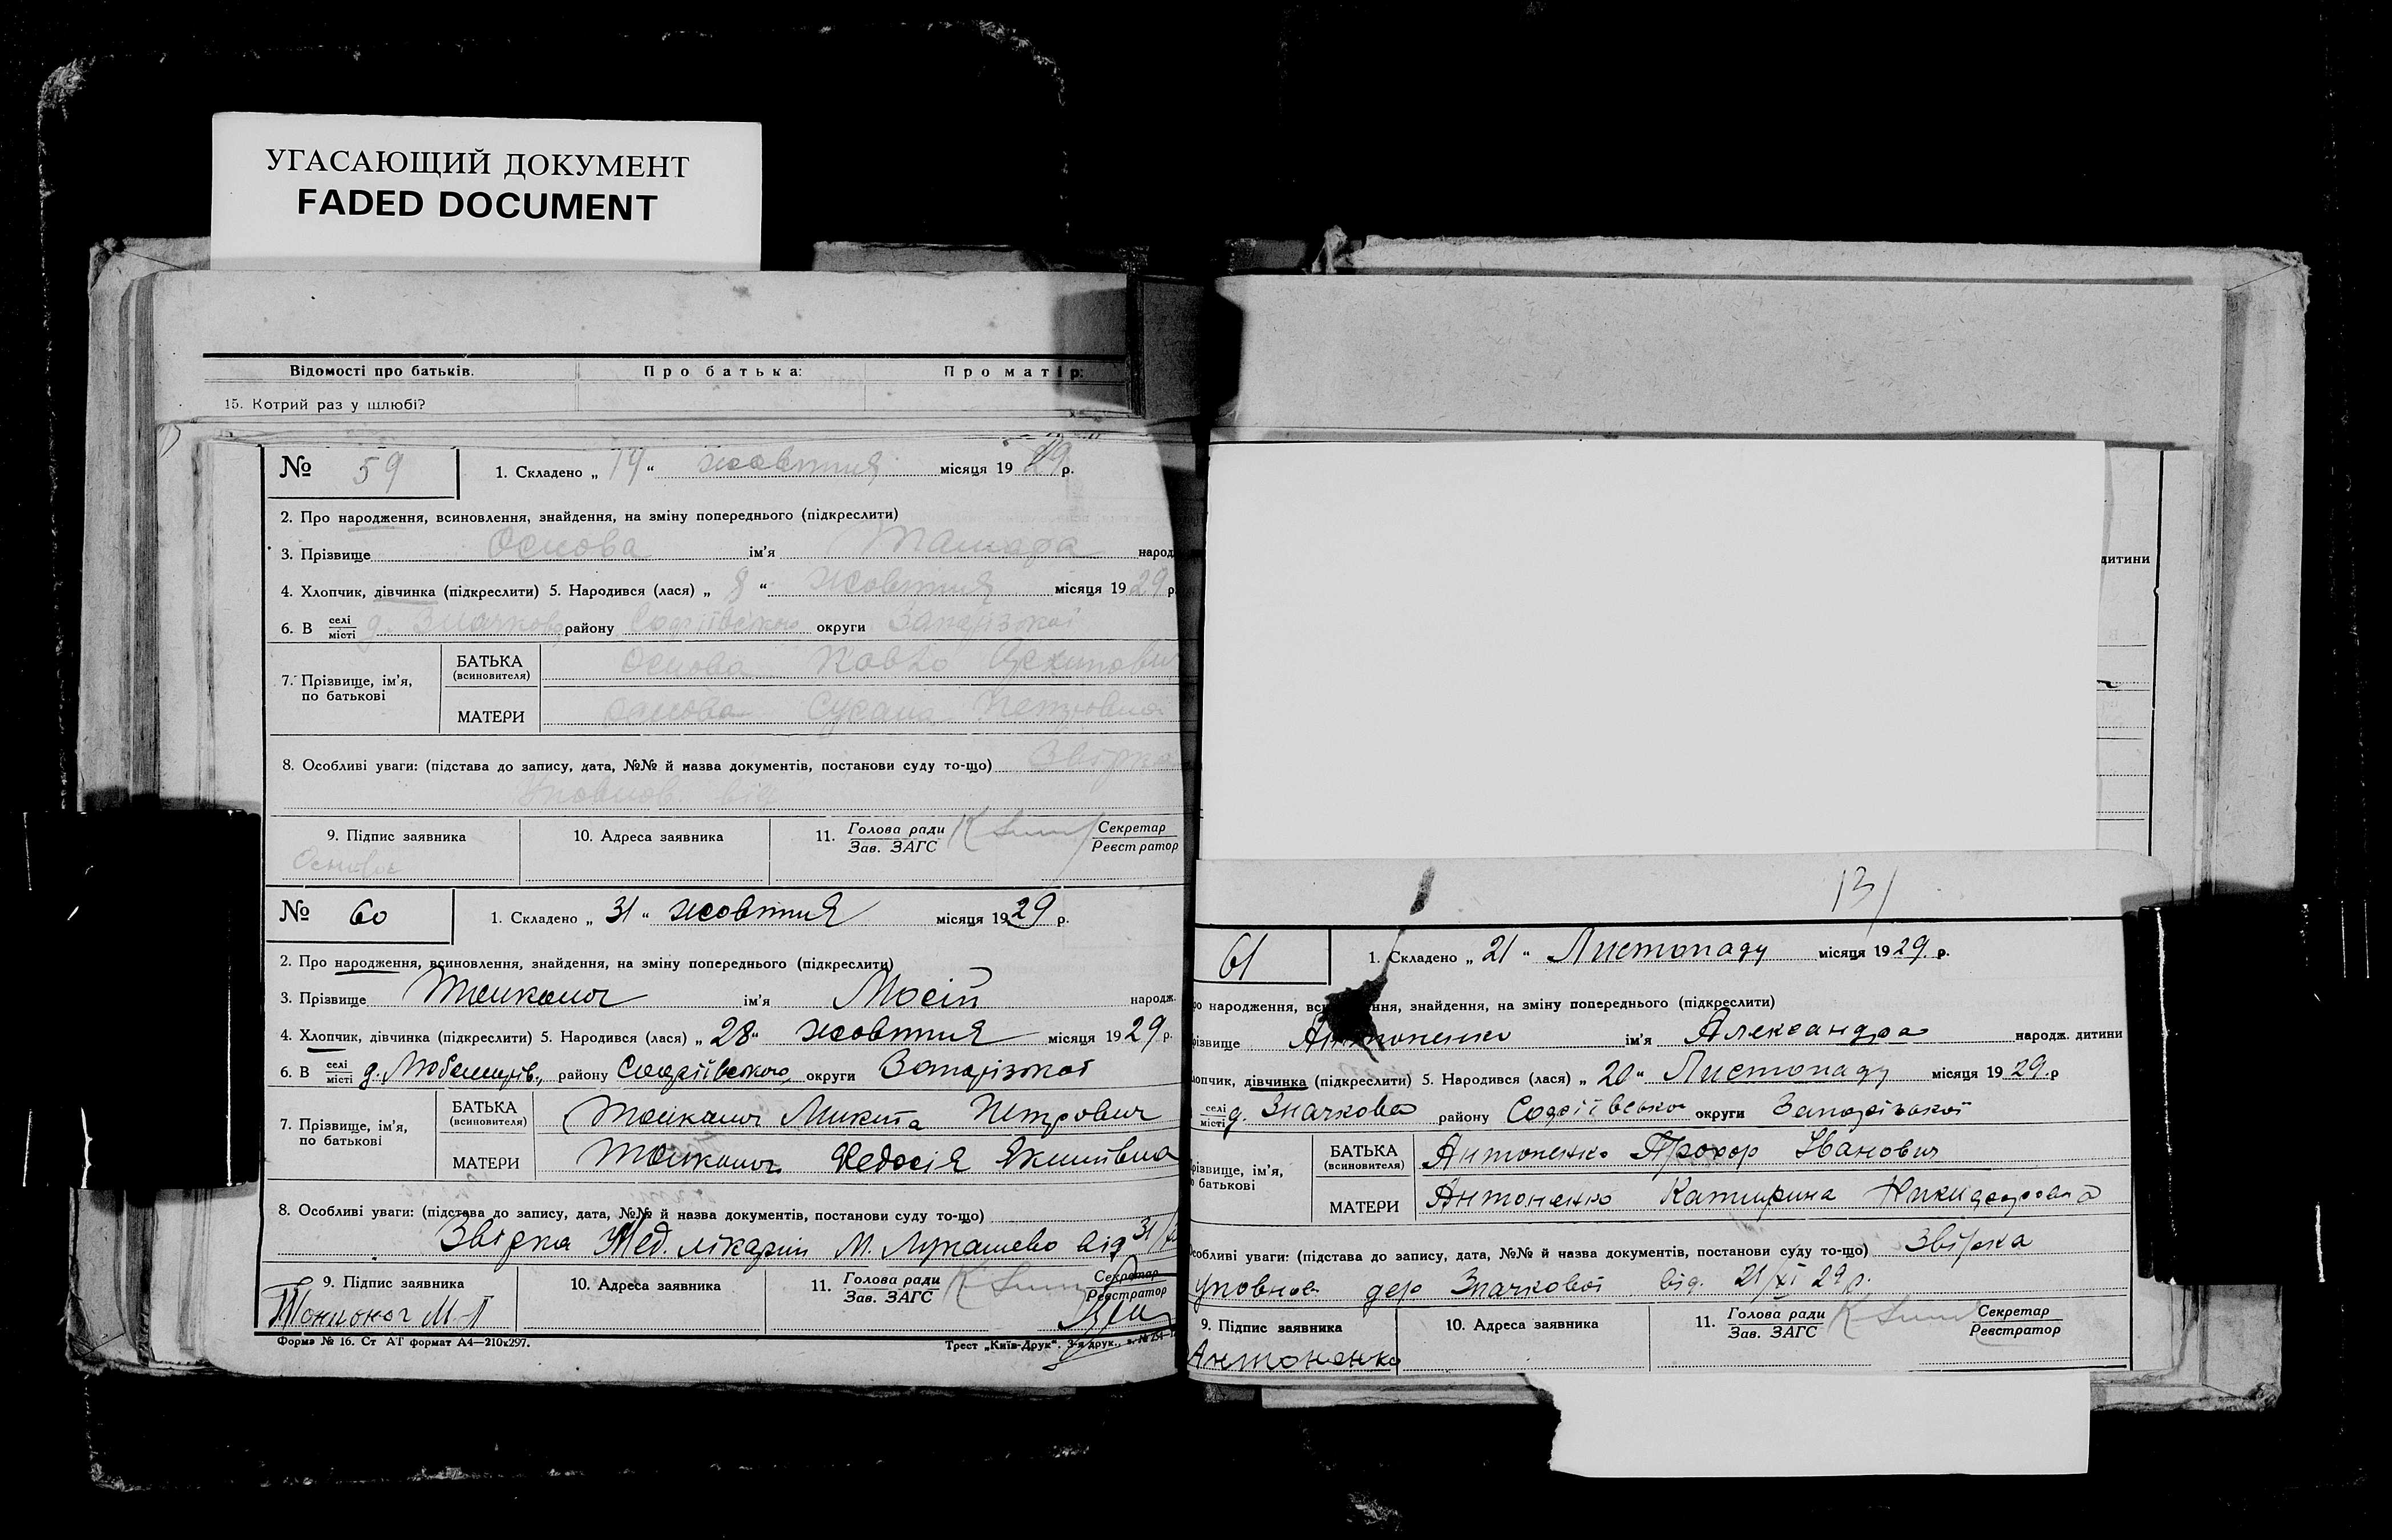 УГАСАЮЩИЙ ДОКУМЕНТ
FADED DOCUMENT
Відомості про батьків. Про батька: Про матір:
15. Котрий раз у шлюбі?
№ 59 1. Складено „ 14 “ жовтня місяця 19 29 р.
2. Про народження, всиновлення, знайдення, на зміну попереднього (підкреслити)
3. Прізвище Основа ім'я Тамара народ
4. Хлопчик, дівчинка (підкреслити) 5. Народився (лася) „ 8 “ жовтня місяця 19 29 р.
6. В селі місті д. Значкова району Софіївського округи Запарізької
7. Прізвище, ім'я, по батькові
БАТЬКА (всиновителя) Основа Павло
МАТЕРИ Петровна
8. Особливі уваги: (підстава до запису, дата, №№ й назва документів, постанови суду то-що) Звірка
Уповнов від
9. Підпис заявника 10. Адреса заявника 11. Голова ради Зав. ЗАГС Секретар Реєстратор
№ 60 1. Складено „ 31 “ жовтня місяця 19 29 р.
2. Про народження, всиновлення, знайдення, на зміну попереднього (підкреслити)
3. Прізвище ім'я Мосій народж.
4. Хлопчик, дівчинка (підкреслити) 5. Народився (лася) „ 28 “ жовтня місяця 19 29 р.
6. В селі місті д. району Софіївського округи Запарізької
7. Прізвище, ім'я, по батькові
БАТЬКА (всиновителя) Микита Петрович
МАТЕРИ Федосія Якимівна
8. Особливі уваги: (підстава до запису, дата, №№ й назва документів, постанови суду то-що)
Звірка Мед. лікарні М. Лукашево від 31/
9. Підпис заявника 10. Адреса заявника 11. Голова ради Зав. ЗАГС Секретар Реєстратор
М П
Форма № 16. Ст АТ формат А4—210х297. Трест „Київ-Друк“. 3-я друк.,
дитини
131
61 1. Складено „ 21 “ Листопаду місяця 19 29 р.
ро народження, вси ння, знайдення, на зміну попереднього (підкреслити)
різвище Антоненко ім'я Александра народж. дитини
лопчик, дівчинка (підкреслити) 5. Народився (лася) „ 20 “ Листопаду місяця 19 29 р
селі місті д. Значкова району Софіївсько округи Запарізької
різвище, ім'я, о батькові
БАТЬКА (всиновителя) Антоненко Прохор Іванович
МАТЕРИ Антоненко Катирина Никифоровна
собливі уваги: (підстава до запису, дата, №№ й назва документів, постанови суду то-що) Звірка
уповнов дер Значкової від. 21/XI 29 р.
9. Підпис заявника 10. Адреса заявника 11. Голова ради Зав. ЗАГС Секретар Реєстратор
Антоненко